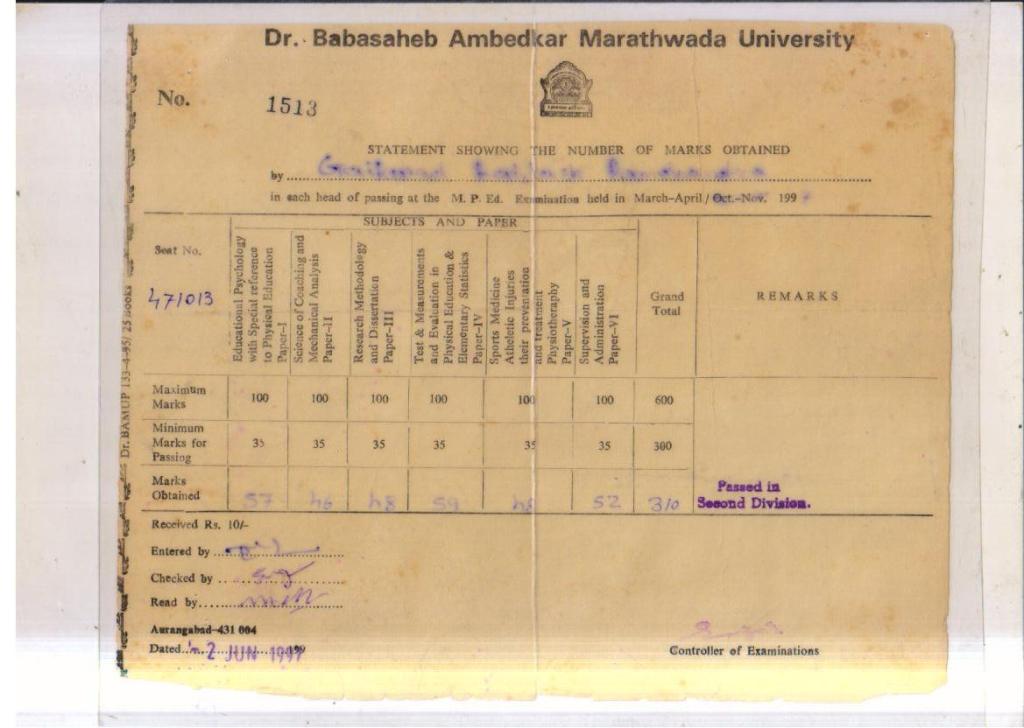 Dr. Babasaheb Ambedkar Marathwada University
No. 1513
STATEMENT SHOWING THE NUMBER OF MARKS OBTAINED
by
in each head of passing at the M. P. Ed. Examination held in March-April/Oct.-Nov. 199
SUBJECTS AND PAPER
Seat No.
471013
Educational Psychology
with Special reference
to Physical Education
Paper-I
Science of Coaching and
Mechanical Analysis
Paper-II
Research Methodology
and Dissertation
Paper-III
Test & Measurements
and Evaluation in
Physical Education &
Elementary Statistics
Paper-IV
Sports Medicine
Atheletic Injuries
their prevention
and treatment
Physiotheraphy
Paper-V
Supervision and
Administration
Paper-VI
Grand
Total
REMARKS
Maximum
Marks 100 100 100 100 100 100 600
Minimum
Marks for
Passing 35 35 35 35 35 35 300
Marks
Obtained 57 46 48 59 48 52 310
Passed in
Second Division.
Received Rs. 10/-
Entered by
Checked by
Read by
Aurangabad-431 004
Dated 2 JUN 1997 199
Controller of Examinations
Dr. BAMUP 133-4-95/ 25 Books